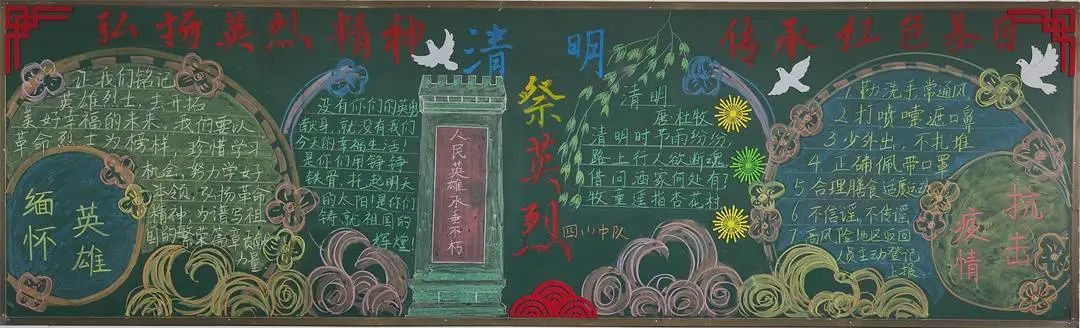 弘扬英烈精神
清明
传承红色基因
让我们铭记
英雄烈士,去开拓
美好幸福的未来,我们要以
革命烈士为榜样,珍惜学习
机会,努力学好
本领,弘扬革命
精神,为谱写祖
国的繁荣篇章贡献
力量
缅怀
英雄
没有你们的英勇
献身,就没有我们
今天的幸福生活!
是你们用铮铮
铁骨,托起明天
的太阳!是你们
铸就祖国的
辉煌!
人民英雄永垂不朽
祭英烈
清明
唐 杜牧
清明时节雨纷纷,
路上行人欲断魂,
借问酒家何处有?
牧童遥指杏花村
四(1)中队
1 勤洗手常通风
2 打喷嚏遮口鼻
3 少外出,不扎堆
4 正确佩带口罩
5 合理膳食适度运动
6 不信谣,不传谣
7 高风险地区返回
人员主动登记
上报
抗击
疫情